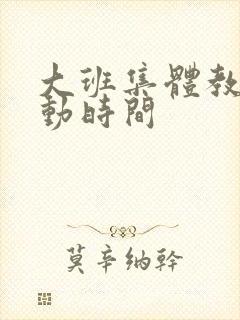 大班集體教
動時間
莫辛纳幹